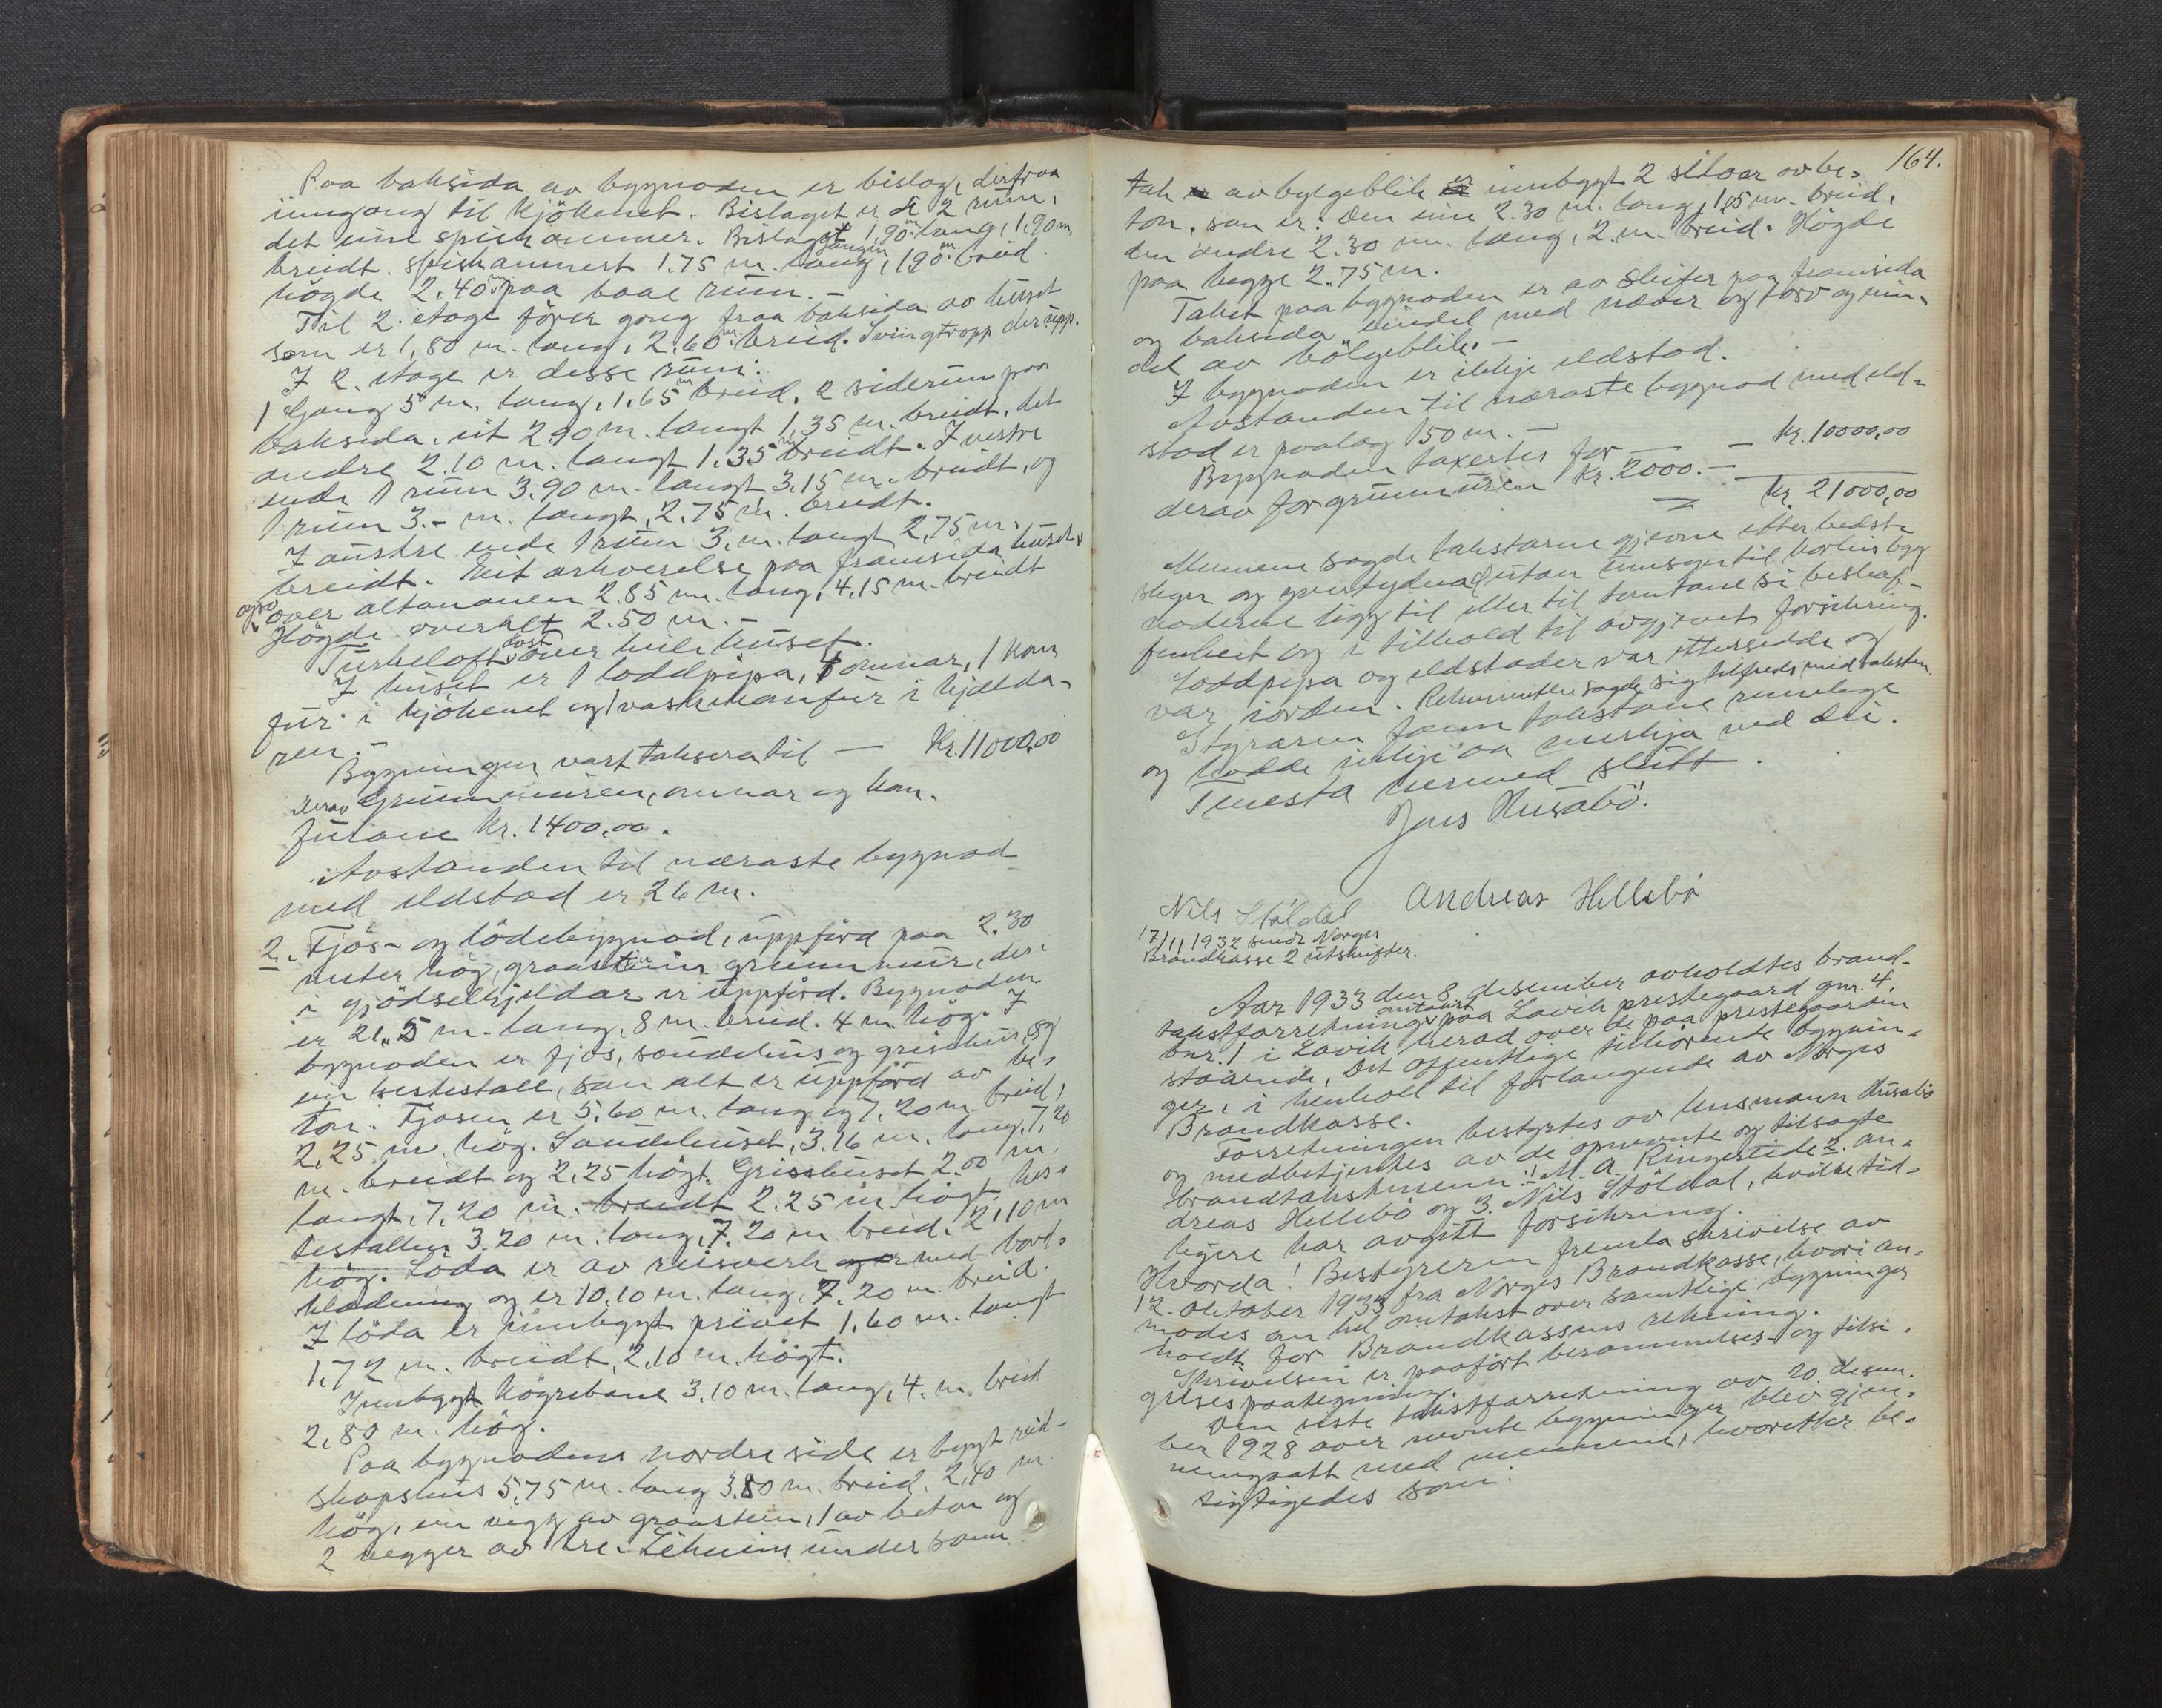 Paa baksida av bygnaden er bislag, derfraa
inngang til kjökenet. Bislaget er i 2 rum,
det eine spiskammer. Bislaggangen 1,90 m lang, 1.90 m.
breidt. Spiskammert 1.75 m. lang, 1,90 m. breid.
högde 2.40 m paa baae rum.-
Til 2. etage förer gang fraa baksida av huset
som er 1,80 m. lang, 2,60 m. breid. Svingtropp der upp.
I 2. etage er desse rum:
1 Gang 5 m. lang, 1,65 m breid, 2 siderum paa
baksida, eit 2.90 m. langt 1,35 m. breidt, det
andre 2.10 m. langt 1.35 m breidt. I vestre
ende 1 rum 3,90 m. langt 3,15 m. breidt, og
1 rum 3.- m. langt, 2,75 m. breidt.
I austre ende 1 rum 3. m. langt 2,75 m.
breidt. Eit arkverelse paa framsida huset
ogso over altananen 2.85 m. lang, 4,15 m. breidt
Högde overalt 2.50 m.-
Turkeloft over heile huset.
I huset er 1 loddpipa, 4 omnar, 1 kom
fur i kjökenet og 1 vaskekomfur i kjelda-
ren.-
Bygningen vart taksera til — Kr. 11000,00
derav Grunnmuren, omnar og kom-
furane kr. 1400,00.
Avstanden til næraste bygnad
med eldstad er 26 m.
2. Fjös- og lödebygnad, uppförd paa 2.30
meter hög, graasteins grunnmur, der
i gjödselkjeldar er uppförd. Bygnaden
er 21,5 m. lang, 8 m. breid. 4 m hög. I
bygnaden er fjös, saudehus og grisehus, og
ein hestestall, som alt er uppförd av be-
ton. Fjosen er 5,60 m. lang og 7,20 m. breid,
2,25 m. hög. Saudehuset, 3.16 m. lang, 7,20
m. breidt og 2,25 högt. Grisehuset 2.00 m.
langt, 7,20 m. breidt 2.25 m högt, hes-
testallen 3.20 m. lang, 7.20 m breid. 2,10 m
hög. Löda er av reisverk og er med bord-
kledning og er 10.10 m. lang, 7,20 m. breid.
I löda er innbygt privet 1,60 m. langt
1,72 m. breidt, 2.10 m. högt.
Innbygt högrebane 3.10 m. lang, 4. m. breid
2,80 m. hög.
Paa bygnadens nordre side er bygt reid-
skapshus 5,75 m. lang 3.80 m. breid, 2,40 m.
hög, ein vegg av graastein, 1 av beton og
2 vegger av tre. Likeins under samme
164.
tak av bylgeblik er innbygt 2 siloar av be-
ton, som er: Den eine 2.30 m. lang, 1,85 m. breid,
den andre 2.30 m. lang, 2. m. breid. Högde
paa begge 2.75 m.
Taket paa bygnaden er av skifer paa framsida
og baksida eindel med næver og torv og ein-
del av bölgeblik.-
I bygnaden er ikkje eldstad.
Avstanden til næraste bygnad med eld-
stad er paalag 150 m.-
Bygnaden taxertes for — — Kr. 10000,00
derav for grunnmuren Kr. 2000.-
= Kr. 21000,00
Mennene sagde takstarne gjevne etter bedste
skjøn og overtydnad utan umsyn til korleis byg
naderne ligg til eller til tomtane si beskaf-
fenheit og i tilhald til avgjevet forsikring.
Loddpipa og eldstader var ettersedde og
var iorden. Rekvirenten sagde sig tilfreds med taksten
Styraren fann takstane rimelege
og hadde inkje aa merkja ved dei.
Tenesta hermed slutt.
Jens Husabö.
Nils Stöldal Andreas Hellebö
17/11 1932 sendt Norges
Brandkasse 2 utskrifter.
Aar 1933 den 8 desember avholdtes brand-
takstforretning omtakst paa Lavik prestegaard gnr. 4,
bnr. 1 i Lavik herad over de paa prestegaarden
staaende, Det offentlige tilhörende bygnin-
ger, i henhold til forlangende av Norges
Brandkasse.
Forretningen bestyrtes av lensmann Husabö
og medbetjentes av de opnevnte og tilsagte
brandtakstmenn: 1. M. A. Ringereide 2. An-
dreas Hellebö og 3. Nils Stöldal, hvilke tid-
ligere har avgitt forsikring.
Hvorda! Bestyreren fremla skrivelse av
12. oktober 1933 fra Norges Brandkasse, hvori an-
modes om hel omtakst over samtlige bygninger
holdt for Brandkassens rekning.
Skrivelsen er paafört berammelses- og tilsi-
gelsespaategning.
Den siste takstforretning av 20 desem-
ber 1928 over nevnte bygninger blev gjen-
nemgaatt med mennene, hvoretter be-
sigtigedes som: